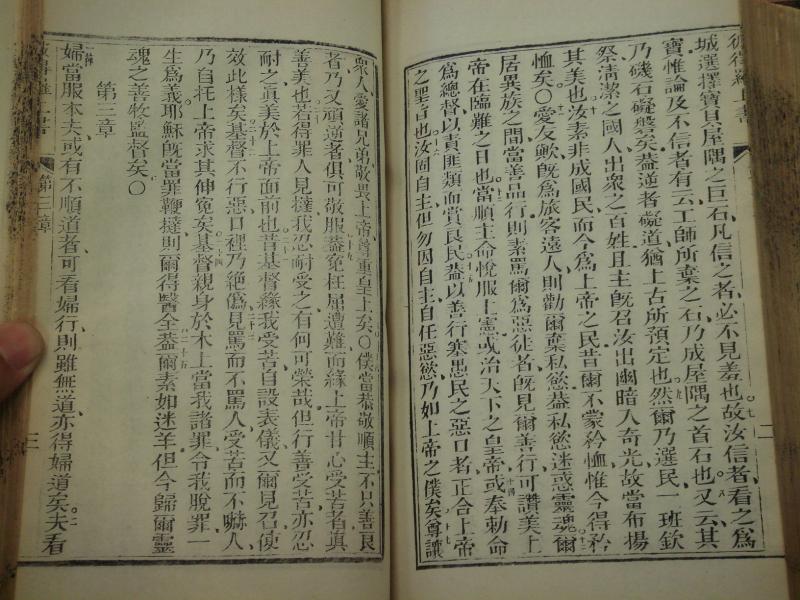 彼得羅上書
二
城選擇寶貝屋隅之巨石凡信之者必不見羞也故汝信者看之爲
寶惟論及不信者有云工師所棄之石乃成屋隅之首石也又云其
乃磯石礙磐矣葢逆者礙道猶上古所預定也然爾乃選民一班欽
祭清潔之國人出衆之百姓且主旣召汝出幽暗入奇光故當布揚
其美也汝素非成國民而今爲上帝之民昔爾不蒙矜恤惟今得矜
恤矣〇愛友歟旣爲旅客遠人則勸爾棄私慾葢私慾迷惑靈魂爾
居異族之間當善品行則素罵爾爲惡徒者旣見爾善行可讚美上
帝在臨難之日也當順主命悅服上憲或治天下之皇帝或奉勅命
爲總督以責匪類而賞良民葢以善行塞愚民之惡口者正合上帝
之聖旨也汝固自主但勿因自主自任惡慾乃如上帝之僕矣尊讓
衆人愛諸兄弟敬畏上帝尊重皇上矣〇僕當恭敬順主不只善良
者乃又頑逆者俱可敬服葢寃枉屈遭難而緣上帝甘心受苦者眞
善美也若得罪人見撻我忍耐受之有何可榮哉但行善受苦亦忍
耐之眞美於上帝面前也昔基督緣我受苦自設表儀又爾見召便
效此樣矣基督不行惡口裡乃絶僞見罵而不罵人受苦而不嚇人
乃自托上帝求其伸寃矣基督親身於木上當我諸罪令我脫罪一
生爲義耶穌旣當罪鞭撻則爾得醫全葢爾素如迷羊但今歸爾靈
魂之善牧監督矣〇
第三章
婦當服本夫或有不順道者可看婦行則雖無道亦得婦道矣夫看
第三章
三